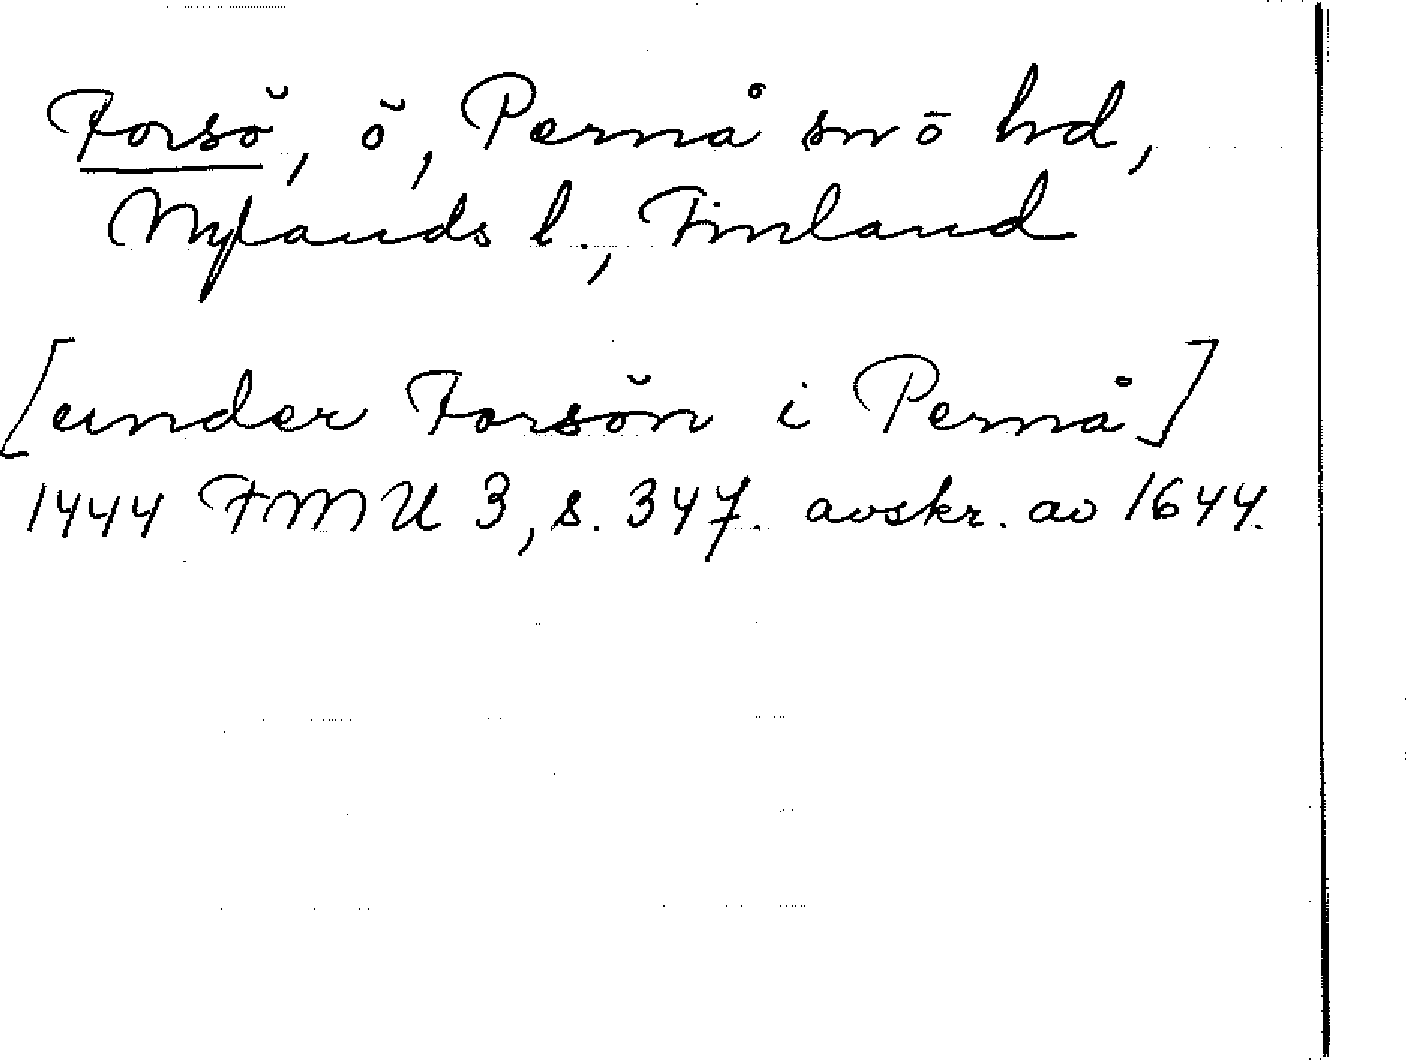 Forsö, ö, Pernå sn o hd,
Nylands l., Finland
[under Forsön i Pernå]
1444 FMU 3, s. 347. avskr. av 1644.